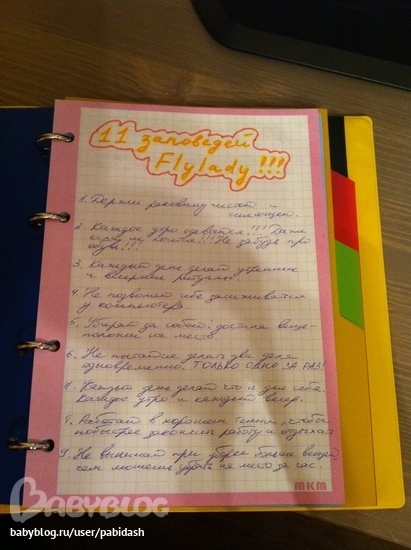 11 заповедей
Flylady!!!
1. Держи раковину чистой и
сияющей.
2. Каждое утро одевайся!!! Даже
если не хочется!!! Не забудь про
обувь!!!
3. Каждый день делай утренние
и вечерние ритуалы
4. Не позволяй себе засиживаться
у компьютера
5. Убирай за собой: достала вещь-
положи на место
6. Не пытайся делать два дела
одновременно. ТОЛЬКО ОДНО ЗА РАЗ!
7. Каждый день делай что-то для себя.
Каждое утро и каждый вечер.
8. Работай в хорошем темпе, чтобы
побыстрее закончить работу и отдыхать
9. Не вынимай при уборке больше вещей,
чем можешь убрать на место за час.
МКМ
BABYBLOG
babyblog.ru/user/pabidash